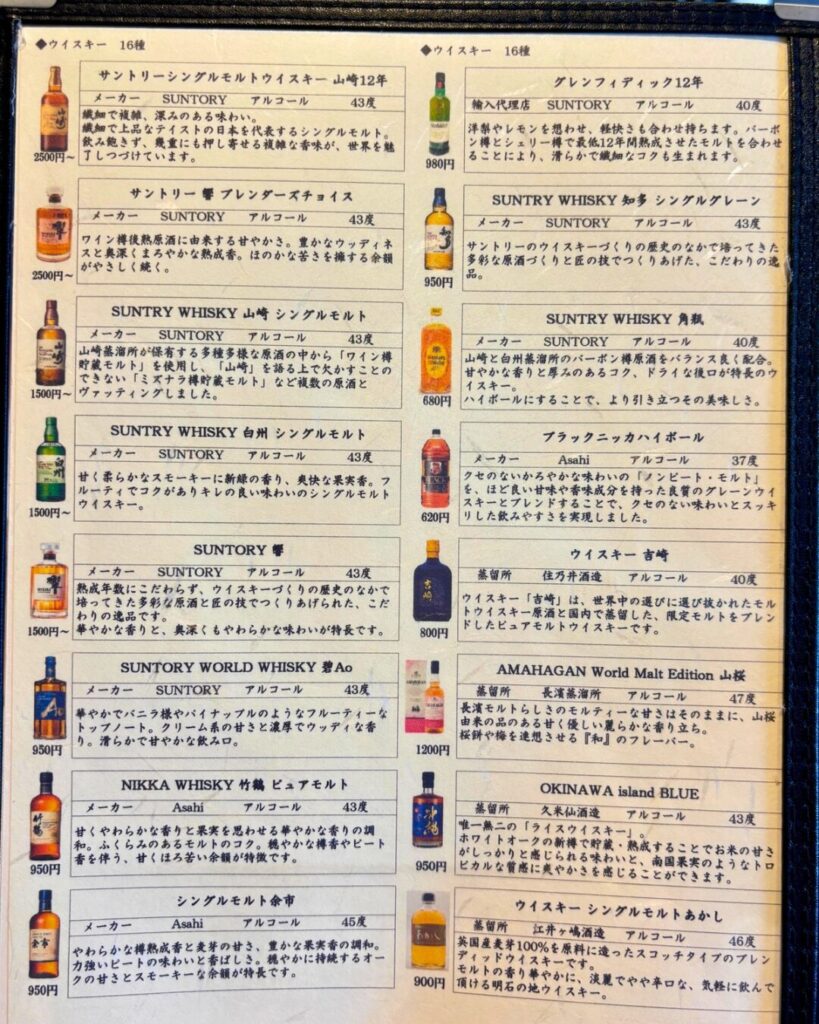 ◆ウイスキー 16種
サントリーシングルモルトウイスキー 山崎12年
メーカー SUNTORY アルコール 43度
繊細で複雑、深みのある味わい。
繊細で上品なテイストの日本を代表するシングルモルト。
飲み飽きず、幾重にも押し寄せる複雑な香味が、世界を魅
了しつづけています。
2500円～
サントリー 響 ブレンダーズチョイス
メーカー SUNTORY アルコール 43度
ワイン樽後熟原酒に由来する甘やかさ。豊かなウッディネ
スと奥深くまろやかな熟成香。ほのかな苦さを擁する余韻
がやさしく続く。
2500円～
SUNTRY WHISKY 山崎 シングルモルト
メーカー SUNTORY アルコール 43度
山崎蒸溜所が保有する多種多様な原酒の中から「ワイン樽
貯蔵モルト」を使用し、「山崎」を語る上で欠かすことの
できない「ミズナラ樽貯蔵モルト」など複数の原酒と
ヴァッティングしました。
1500円～
SUNTRY WHISKY 白州 シングルモルト
メーカー SUNTORY アルコール 43度
甘く柔らかなスモーキーに新緑の香り、爽快な果実香。フ
ルーティでコクがありキレの良い味わいのシングルモルト
ウイスキー。
1500円～
SUNTORY 響
メーカー SUNTORY アルコール 43度
熟成年数にこだわらず、ウイスキーづくりの歴史のなかで
培ってきた多彩な原酒と匠の技でつくりあげられた、こだ
わりの逸品です。
華やかな香りと、奥深くもやわらかな味わいが特長です。
1500円～
SUNTORY WORLD WHISKY 碧Ao
メーカー SUNTORY アルコール 43度
華やかでバニラ様やパイナップルのようなフルーティーな
トップノート。クリーム系の甘さと濃厚でウッディな香
り。滑らかで甘やかな飲み口。
950円
NIKKA WHISKY 竹鶴 ピュアモルト
メーカー Asahi アルコール 43度
甘くやわらかな香りと果実を思わせる華やかな香りの調
和。ふくらみのあるモルトのコク。穏やかな樽香やピート
香を伴う、甘くほろ苦い余韻が特徴です。
950円
シングルモルト余市
メーカー Asahi アルコール 45度
やわらかな樽熟成香と麦芽の甘さ、豊かな果実香の調和。
力強いピートの味わいと香ばしさ。穏やかに持続するオー
クの甘さとスモーキーな余韻が特長です。
950円
◆ウイスキー 16種
グレンフィディック12年
輸入代理店 SUNTORY アルコール 40度
洋梨やレモンを想わせ、軽快さも合わせ持ちます。バーボ
ン樽とシェリー樽で最低12年間熟成させたモルトを合わせ
ることにより、滑らかで繊細なコクも生まれます。
980円
SUNTRY WHISKY 知多 シングルグレーン
メーカー SUNTORY アルコール 43度
サントリーのウイスキーづくりの歴史のなかで培ってきた
多彩な原酒づくりと匠の技でつくりあげた、こだわりの逸
品。
950円
SUNTRY WHISKY 角瓶
メーカー SUNTORY アルコール 40度
山崎と白州蒸溜所のバーボン樽原酒をバランス良く配合。
甘やかな香りと厚みのあるコク、ドライな後口が特長のウ
イスキー。
ハイボールにすることで、より引き立つその美味しさ。
680円
ブラックニッカハイボール
メーカー Asahi アルコール 37度
クセのないかろやかな味わいの「ノンピート・モルト」
を、ほど良い甘味や香味成分を持った良質のグレーンウイ
スキーとブレンドすることで、クセのない味わいとスッキ
リした飲みやすさを実現しました。
620円
ウイスキー 吉崎
蒸留所 住乃井酒造 アルコール 40度
ウイスキー「吉崎」は、世界中の選びに選び抜かれたモル
トウイスキー原酒と国内で蒸留した、限定モルトをブレン
ドしたピュアモルトウイスキーです。
800円
AMAHAGAN World Malt Edition 山桜
蒸留所 長濱蒸溜所 アルコール 47度
長濱モルトらしさのモルティーな甘さはそのままに、山桜
由来の品のある甘く優しい麗らかな香り立ち。
桜餅や梅を連想させる『和』のフレーバー。
1200円
OKINAWA island BLUE
蒸留所 久米仙酒造 アルコール 43度
唯一無二の「ライスウイスキー」。
ホワイトオークの新樽で貯蔵・熟成することでお米の甘さ
がしっかりと感じられる味わいと、南国果実のようなトロ
ピカルな質感に爽やかさを感じることができます。
950円
ウイスキー シングルモルトあかし
蒸留所 江井ヶ嶋酒造 アルコール 46度
英国産麦芽100%を原料に造ったスコッチタイプのブレン
ディッドウイスキーです。
モルトの香り華やかに、淡麗でやや辛口な、気軽に飲んで
頂ける明石の地ウイスキー。
900円